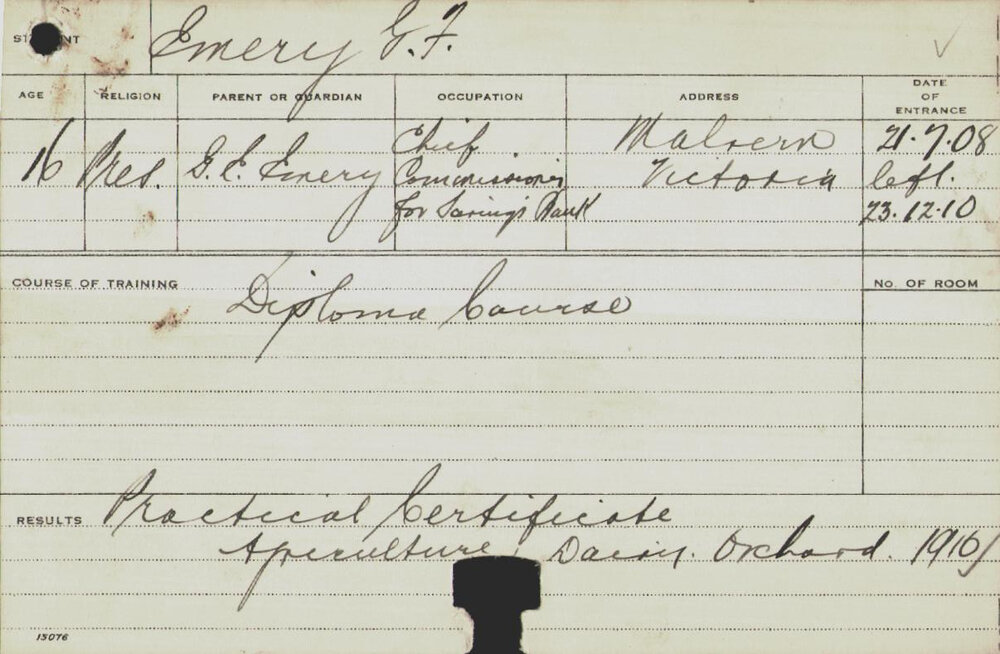 STUDENT Emery G. F.
AGE RELIGION PARENT OR GUARDIAN OCCUPATION ADDRESS DATE OF ENTRANCE
16 Pres. G. E. Emery Chief Commissioner for Savings Bank Malvern Victoria 21.7.08 left. 23.12.10
COURSE OF TRAINING Diploma Course No. OF ROOM
RESULTS Practical Certificate
Apiculture, Dairy. Orchard. 1910/
15076